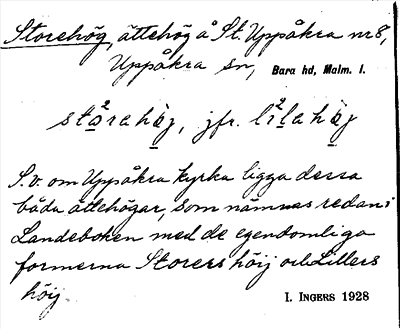 Storehög, ättehög å St. Uppåkra nr 8,
Uppåkra sn, Bara hd, Malm. l.
stå²rahöj, jfr. li²lahöj
S.v. om Uppåkra kyrka ligga dessa
båda ättehögar, som nämnas redan i
Landeboken med de egendomliga
formerna Storers höij och Lillers
höij.
I. INGERS 1928